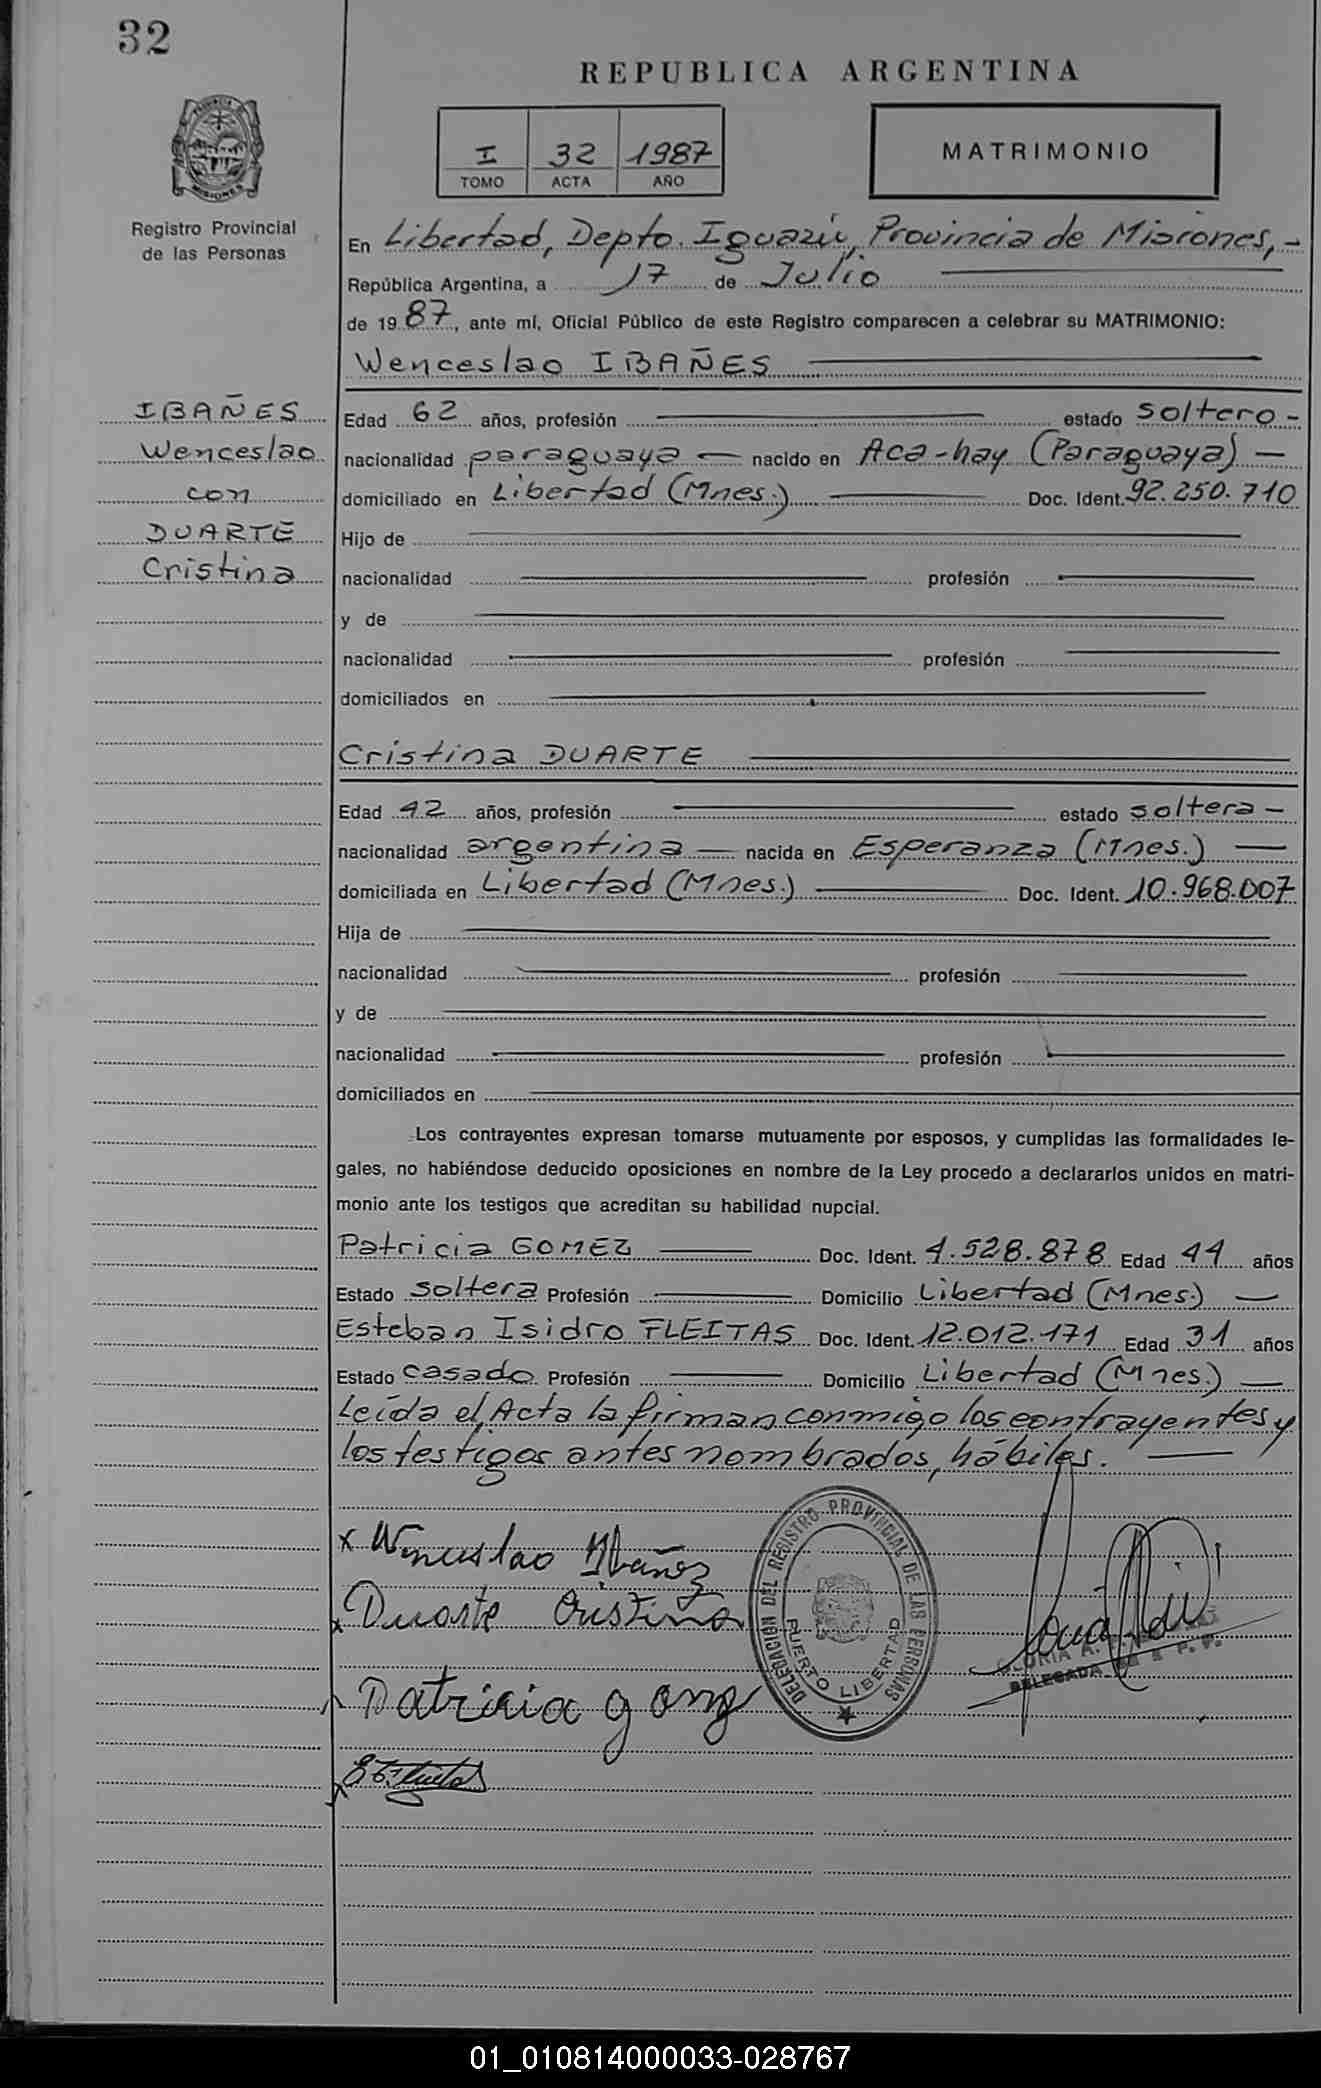 32
REPUBLICA ARGENTINA
I 32 1987
TOMO ACTA AÑO
MATRIMONIO
PROVINCIA DE MISIONES
Registro Provincial
de las Personas
En Libertad, Depto. Iguazú, Provincia de Misiones,-
República Argentina, a 17 de Julio
de 1987, ante mí, Oficial Público de este Registro comparecen a celebrar su MATRIMONIO:
Wenceslao IBAÑES
IBAÑES
Wenceslao
con
DUARTE
Cristina
Edad 62 años, profesión estado soltero-
nacionalidad paraguaya nacido en Aca-hay (Paraguaya)
domiciliado en Libertad (Mnes.) Doc. Ident. 92.250.710
Hijo de
nacionalidad profesión
y de
nacionalidad profesión
domiciliados en
Cristina DUARTE
Edad 42 años, profesión estado soltera-
nacionalidad argentina nacida en Esperanza (Mnes.)
domiciliada en Libertad (Mnes.) Doc. Ident. 10.968.007
Hija de
nacionalidad profesión
y de
nacionalidad profesión
domiciliados en
Los contrayentes expresan tomarse mutuamente por esposos, y cumplidas las formalidades le-
gales, no habiéndose deducido oposiciones en nombre de la Ley procedo a declararlos unidos en matri-
monio ante los testigos que acreditan su habilidad nupcial.
Patricia GOMEZ Doc. Ident. 4.528.878 Edad 44 años
Estado soltera Profesión Domicilio Libertad (Mnes.)
Esteban Isidro FLEITAS Doc. Ident. 12.012.171 Edad 31 años
Estado casado Profesión Domicilio Libertad (Mnes.)
Leída el Acta la firman conmigo los contrayentes y
los testigos antes nombrados, hábiles.
x Wenceslao Ibañez
x Duarte Cristina
x Patricia gomez
DELEGACION DEL REGISTRO PROVINCIAL DE LAS PERSONAS
PUERTO LIBERTAD
GLORIA A.
DELEGADA
01_010814000033-028767